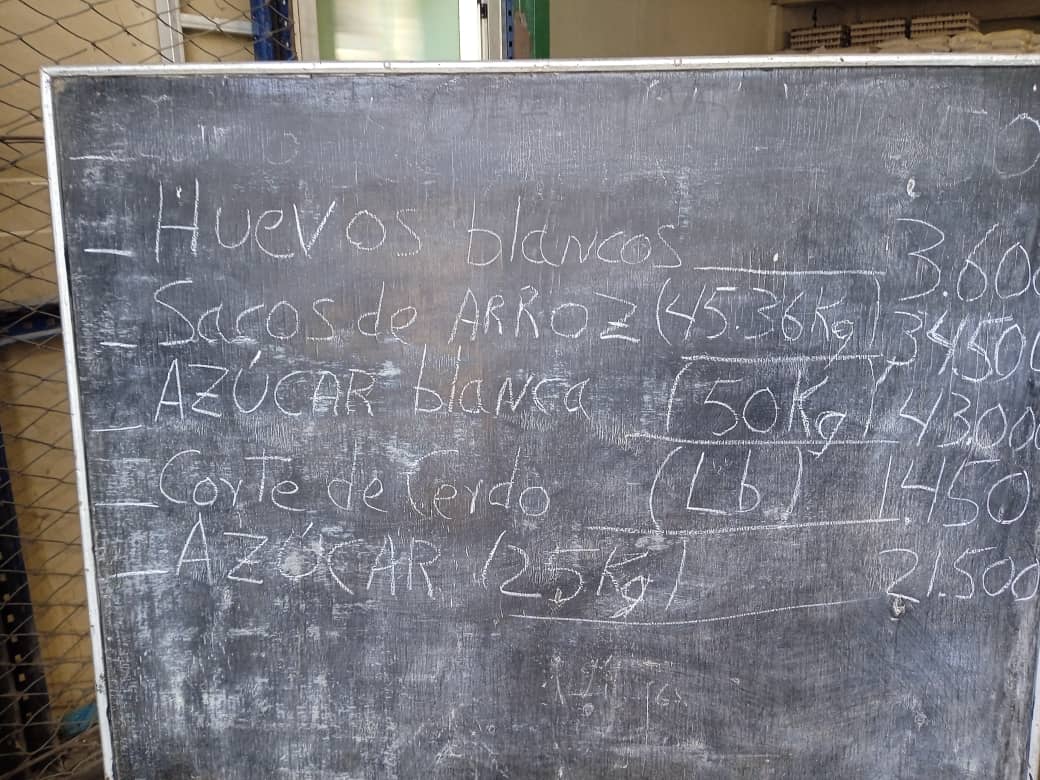 - Huevos blancos ______ 3.600
- Sacos de ARROZ (45.36Kg) 34.500
- AZÚCAR blanca (50Kg) 43.000
- Corte de Cerdo (Lb) 1.450
- AZÚCAR (25Kg) 21.500